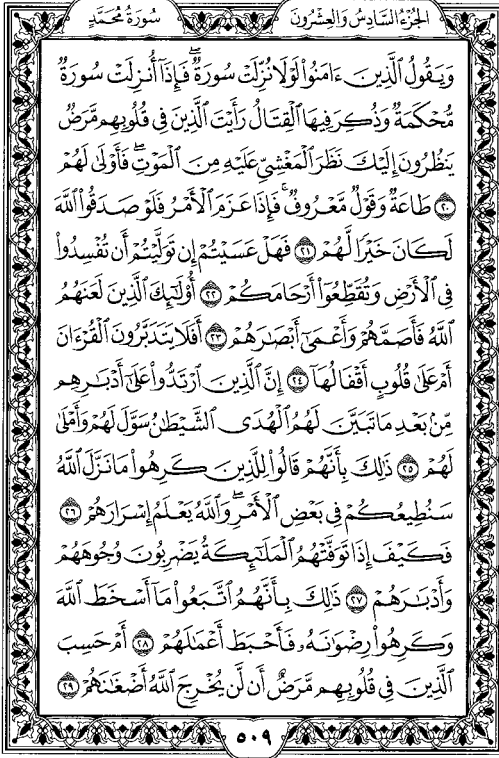 سُورَةُ مُحَمَّدٍ
الجُزْءُ السَّادِسُ وَالعِشْرُونَ
وَيَقُولُ الَّذِينَ ءَامَنُوا۟ لَوْلَا نُزِّلَتْ سُورَةٌ ۖ فَإِذَآ أُنزِلَتْ سُورَةٌ
مُّحْكَمَةٌ وَذُكِرَ فِيهَا الْقِتَالُ رَأَيْتَ الَّذِينَ فِى قُلُوبِهِم مَّرَضٌ
يَنظُرُونَ إِلَيْكَ نَظَرَ الْمَغْشِىِّ عَلَيْهِ مِنَ الْمَوْتِ ۖ فَأَوْلَىٰ لَهُمْ
٢٠ طَاعَةٌ وَقَوْلٌ مَّعْرُوفٌ ۚ فَإِذَا عَزَمَ الْأَمْرُ فَلَوْ صَدَقُوا۟ اللَّهَ
لَكَانَ خَيْرًا لَّهُمْ ٢١ فَهَلْ عَسَيْتُمْ إِن تَوَلَّيْتُمْ أَن تُفْسِدُوا۟
فِى الْأَرْضِ وَتُقَطِّعُوٓا۟ أَرْحَامَكُمْ ٢٢ أُو۟لَٰٓئِكَ الَّذِينَ لَعَنَهُمُ
اللَّهُ فَأَصَمَّهُمْ وَأَعْمَىٰٓ أَبْصَٰرَهُمْ ٢٣ أَفَلَا يَتَدَبَّرُونَ الْقُرْءَانَ
أَمْ عَلَىٰ قُلُوبٍ أَقْفَالُهَآ ٢٤ إِنَّ الَّذِينَ ارْتَدُّوا۟ عَلَىٰٓ أَدْبَٰرِهِم
مِّنۢ بَعْدِ مَا تَبَيَّنَ لَهُمُ الْهُدَى ۙ الشَّيْطَٰنُ سَوَّلَ لَهُمْ وَأَمْلَىٰ
لَهُمْ ٢٥ ذَٰلِكَ بِأَنَّهُمْ قَالُوا۟ لِلَّذِينَ كَرِهُوا۟ مَا نَزَّلَ اللَّهُ
سَنُطِيعُكُمْ فِى بَعْضِ الْأَمْرِ ۖ وَاللَّهُ يَعْلَمُ إِسْرَارَهُمْ ٢٦
فَكَيْفَ إِذَا تَوَفَّتْهُمُ الْمَلَٰٓئِكَةُ يَضْرِبُونَ وُجُوهَهُمْ
وَأَدْبَٰرَهُمْ ٢٧ ذَٰلِكَ بِأَنَّهُمُ اتَّبَعُوا۟ مَآ أَسْخَطَ اللَّهَ
وَكَرِهُوا۟ رِضْوَٰنَهُۥ فَأَحْبَطَ أَعْمَٰلَهُمْ ٢٨ أَمْ حَسِبَ
الَّذِينَ فِى قُلُوبِهِم مَّرَضٌ أَن لَّن يُخْرِجَ اللَّهُ أَضْغَٰنَهُمْ ٢٩
٥٠٩